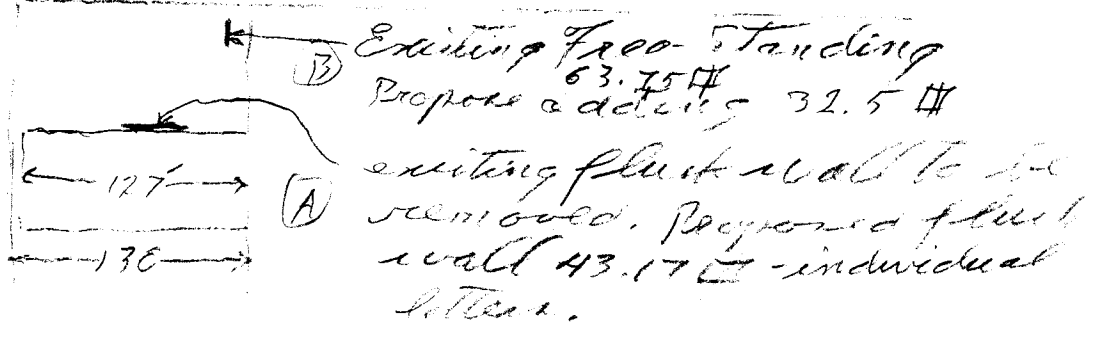 Ⓑ Existing Free-Standing
63.75 #
Propose adding 32.5 #
127'
Ⓐ existing flush wall to be
removed. Proposed flush
wall 43.17 □ - individual
138
letters.